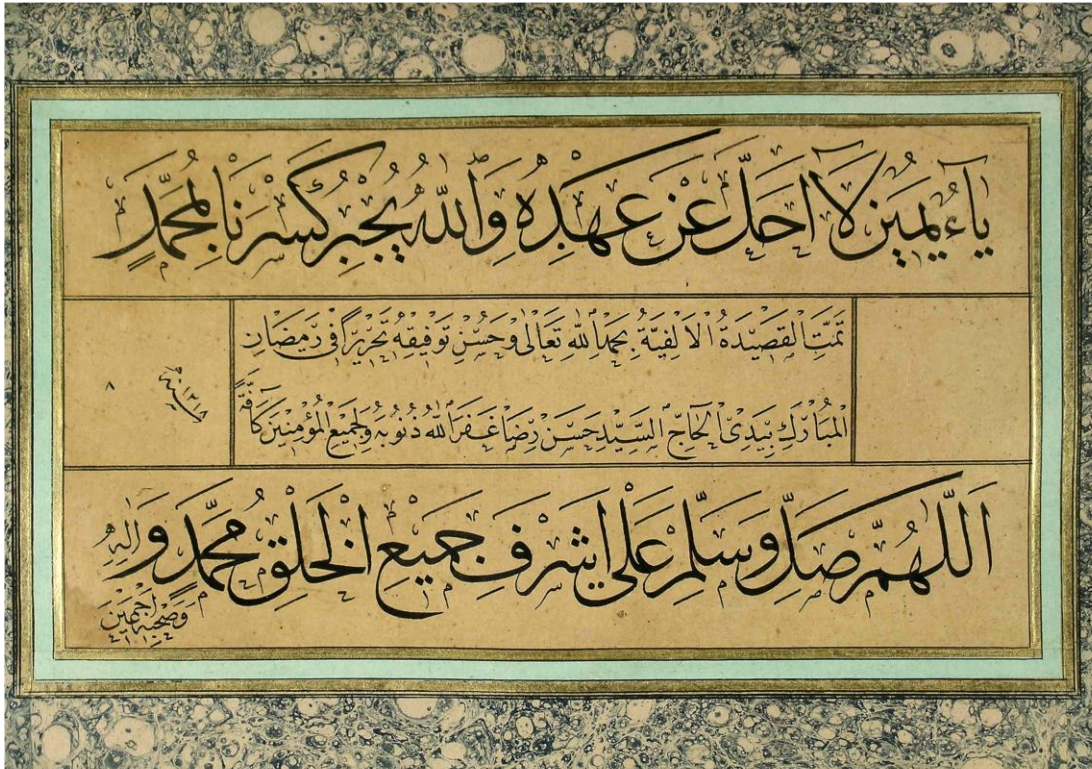 ياء يمين لا احل عن عهده والله يجبر كسرنا بمحمد
تمت القصيدة الالفية بحمد الله تعالى وحسن توفيقه تحريرا في رمضان
المبارك بيدي الحاج السيد حسن رضا غفر الله ذنوبه ولجميع المؤمنين كافة
سنه ١٣١٨
اللهم صل وسلم على اشرف جميع الخلق محمد واله
وصحبه اجمعين